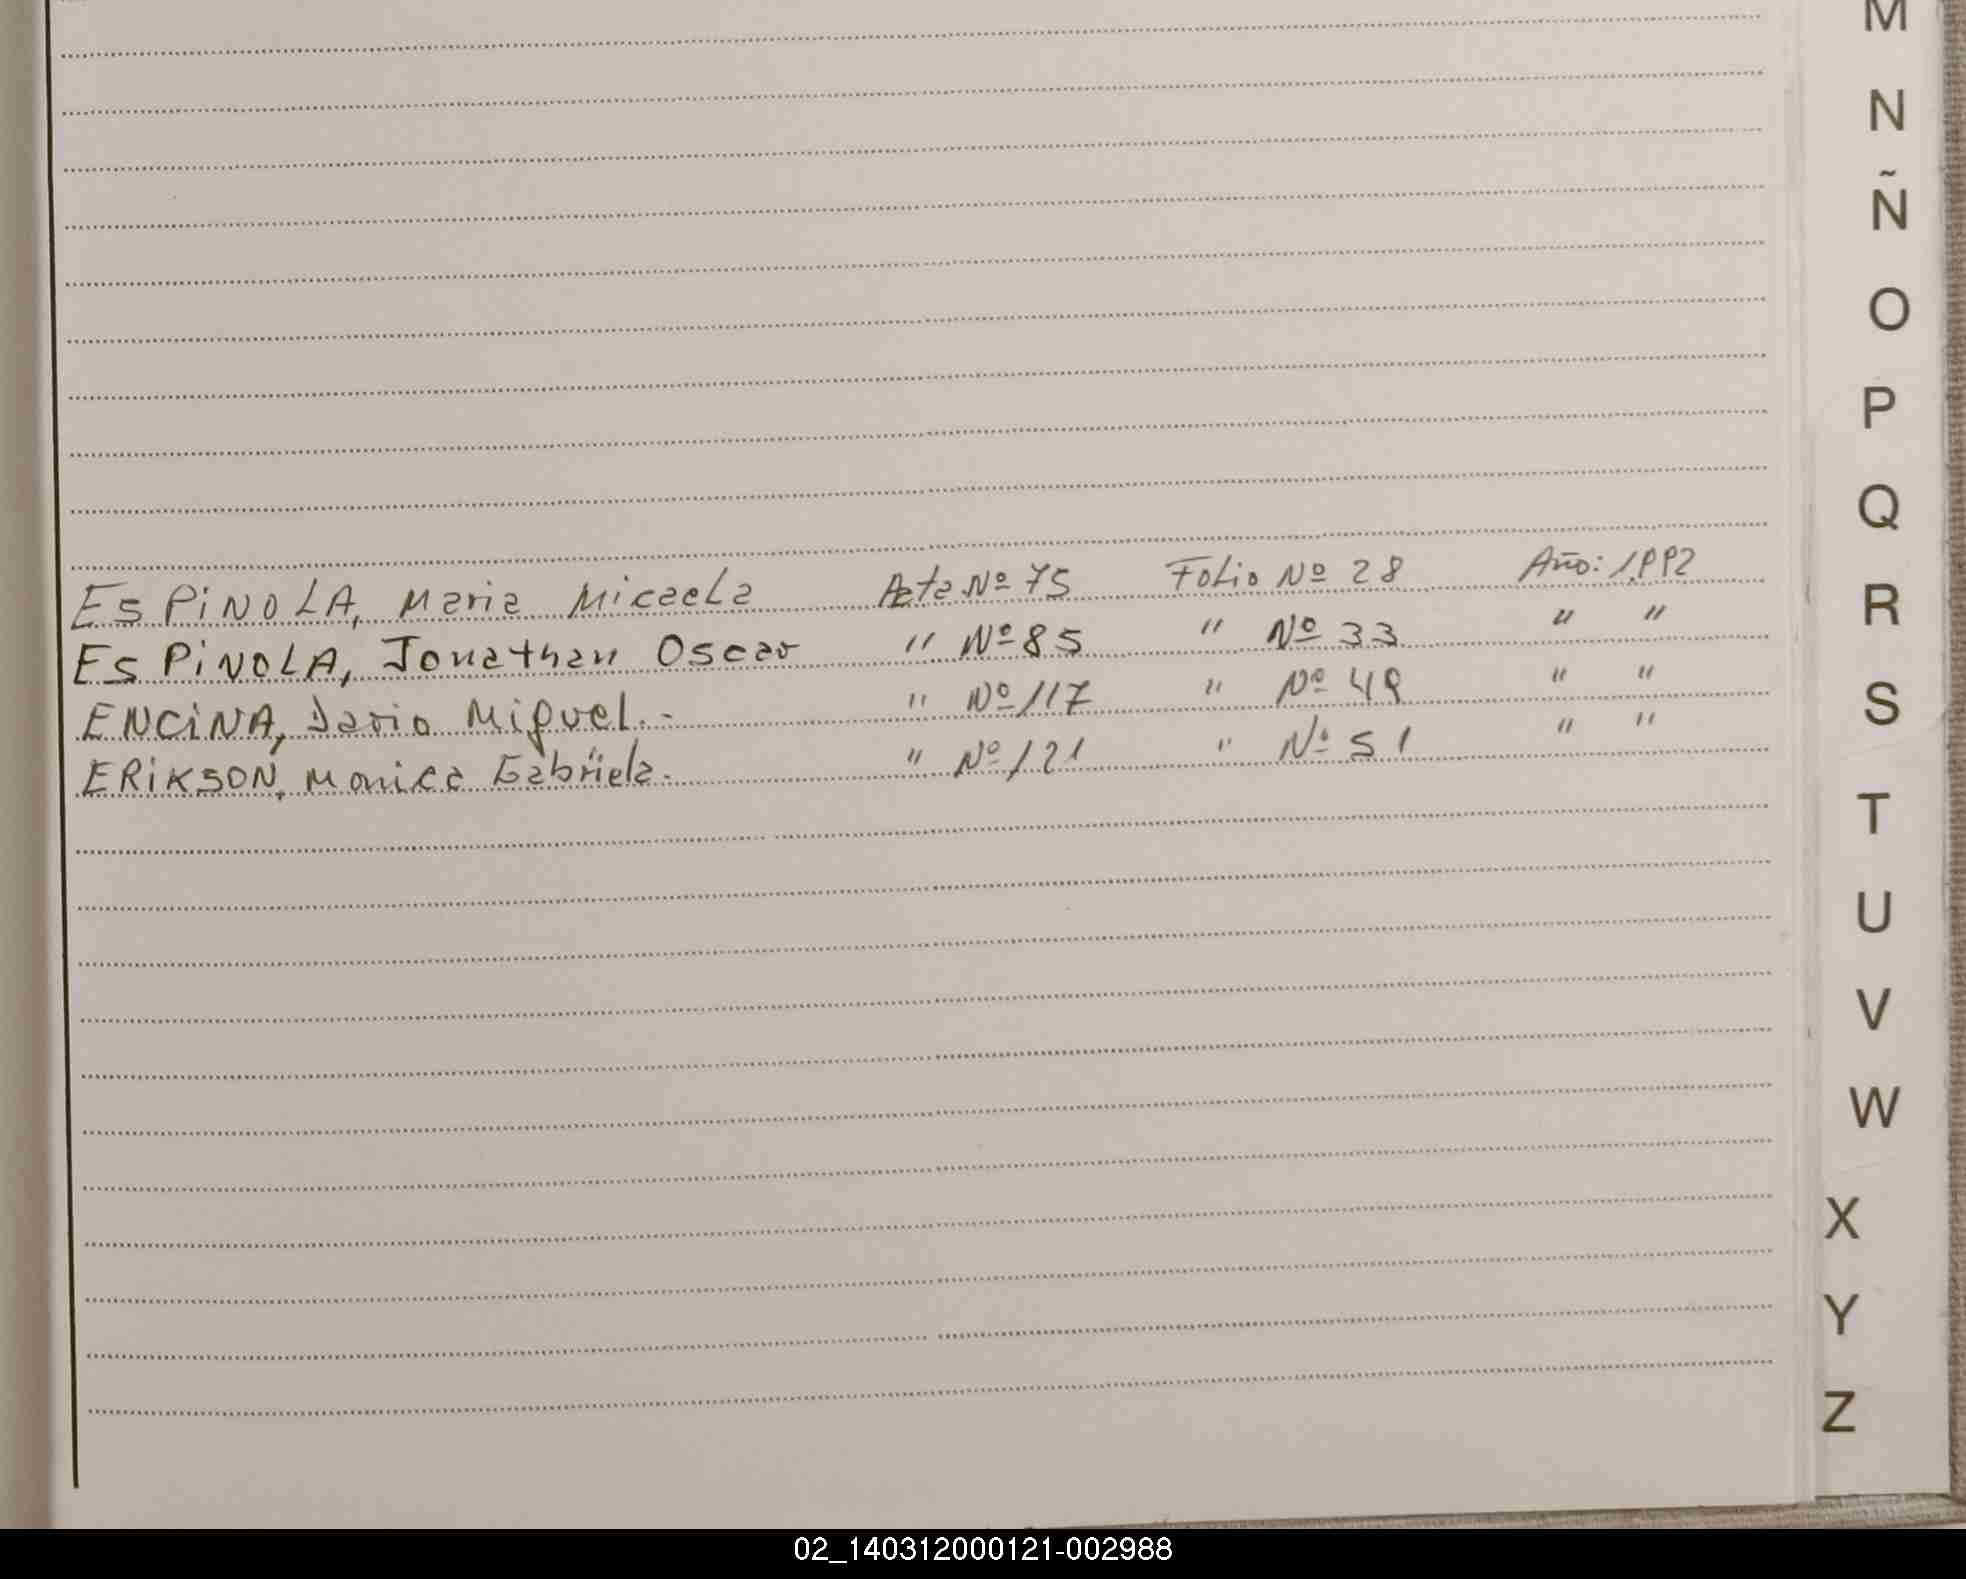 M
N
Ñ
O
P
Q
R
S
T
U
V
W
X
Y
Z
ESPiNOLA, Maria Micaela Acta Nº 75 Folio Nº 28 Año: 1.992
ESPiNOLA, Jonathan Oscar " Nº 85 " Nº 33 " "
ENCiNA, Dario Miguel.- " Nº 117 " Nº 49 " "
ERiKSON, Monica Gabriela.- " Nº 121 " Nº 51 " "
02_140312000121-002988